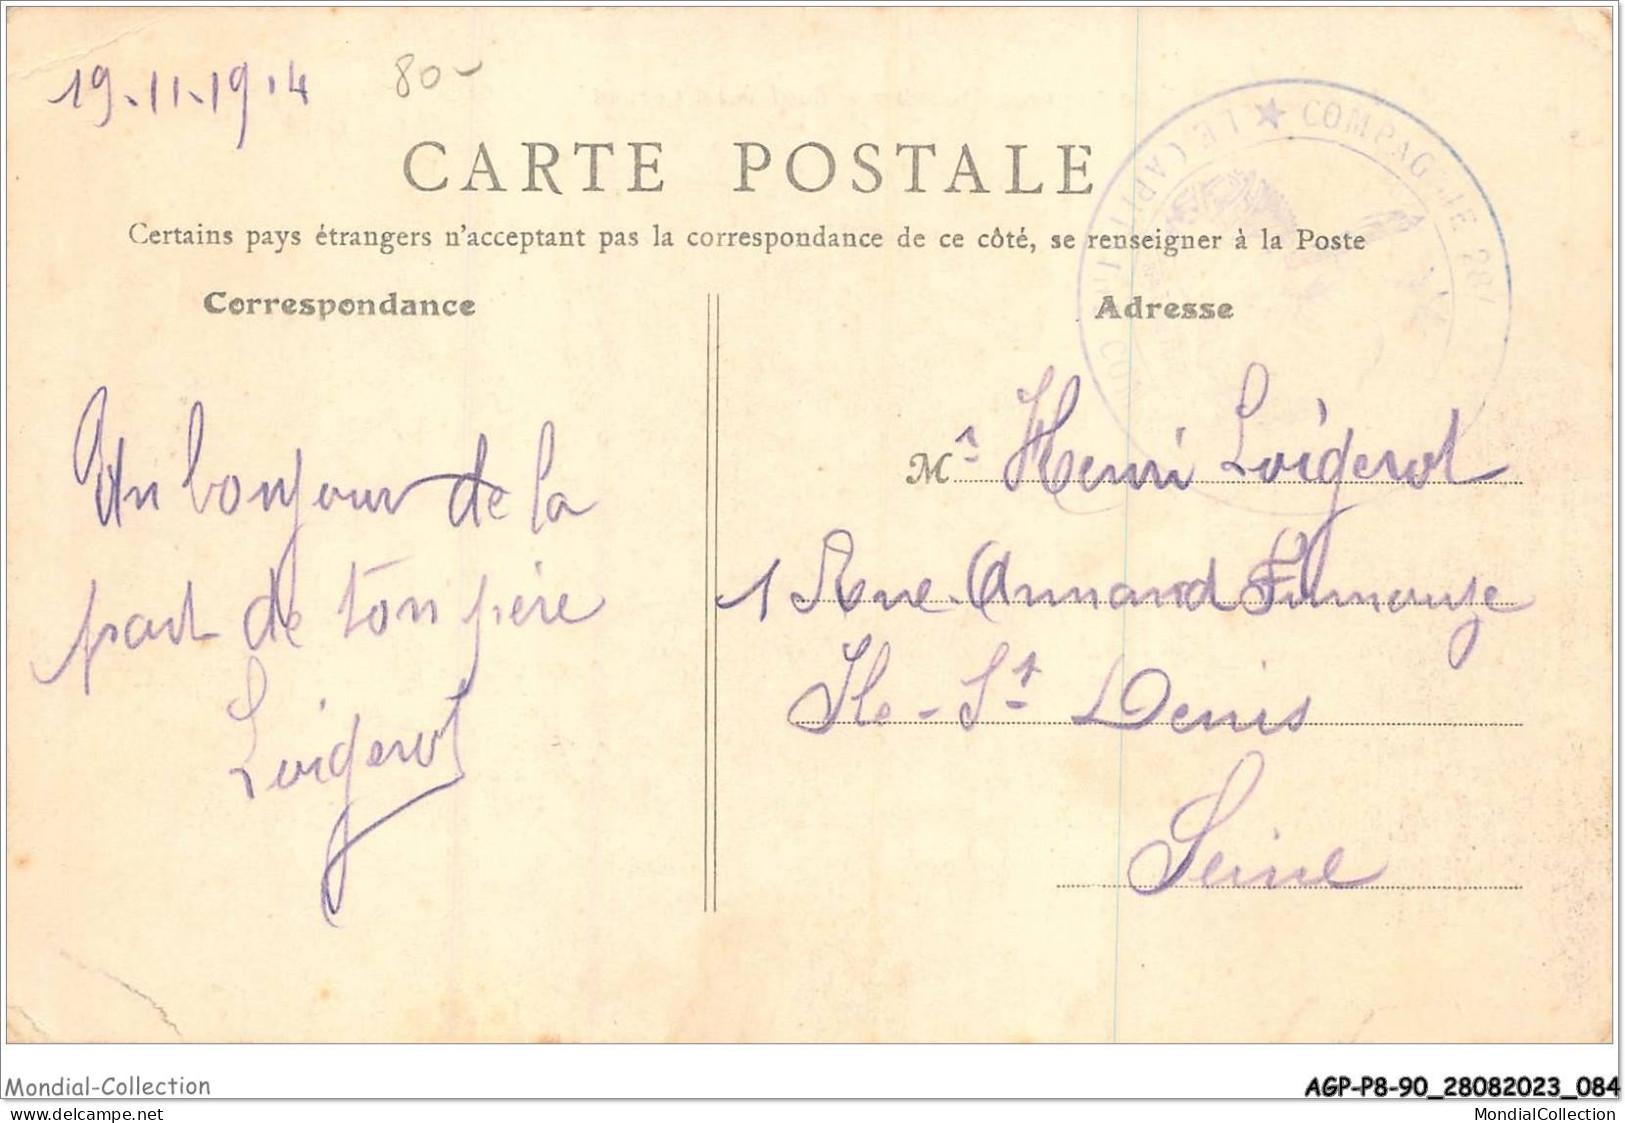 19.11.1914 80-
CARTE POSTALE
Certains pays étrangers n'acceptant pas la correspondance de ce côté, se renseigner à la Poste
Correspondance
Adresse
LE CAPIT COM ★ COMPAGNIE 28
Un bonjour de la
part de ton père
Loigerot
Mr Henri Loigerot
1 Rue Armand
Ile-St Denis
Seine
Mondial-Collection
AGP-P8-90_28082023_084
www.delcampe.net
MondialCollection